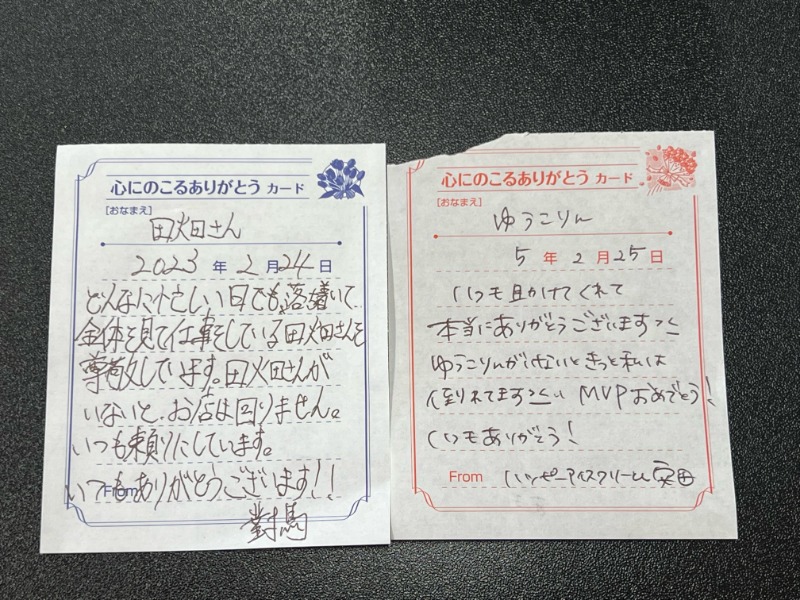 心にのこるありがとう カード
[おなまえ]
田畑さん
2023 年 2 月 24 日
どんなに忙しい日でも、落ち着いて
全体を見て仕事をしている田畑さんを
尊敬しています。田畑さんが
いないと、お店は回りません。
いつも頼りにしています。
いつもありがとうございます!!
From
對馬
心にのこるありがとう カード
[おなまえ]
ゆうこりん
5 年 2 月 25 日
いつも助けてくれて
本当にありがとうございます
ゆうこりんがいないときっと私は
倒れてます MVPおめでとう!
いつもありがとう!
From ハッピーアイスクリーム 安田